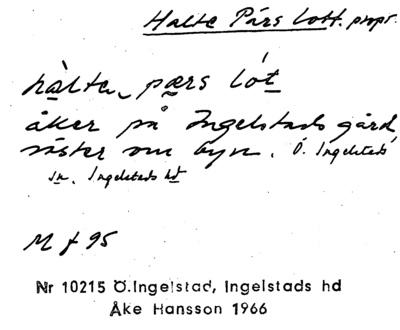 Halte Pärs Lott. propr.
hàlta pærs lót
åker på Ingelstads gård,
väster om byn. Ö. Ingelstads
sn. Ingelstads hd
M f 95
Nr 10215 Ö.Ingelstad, Ingelstads hd
Åke Hansson 1966